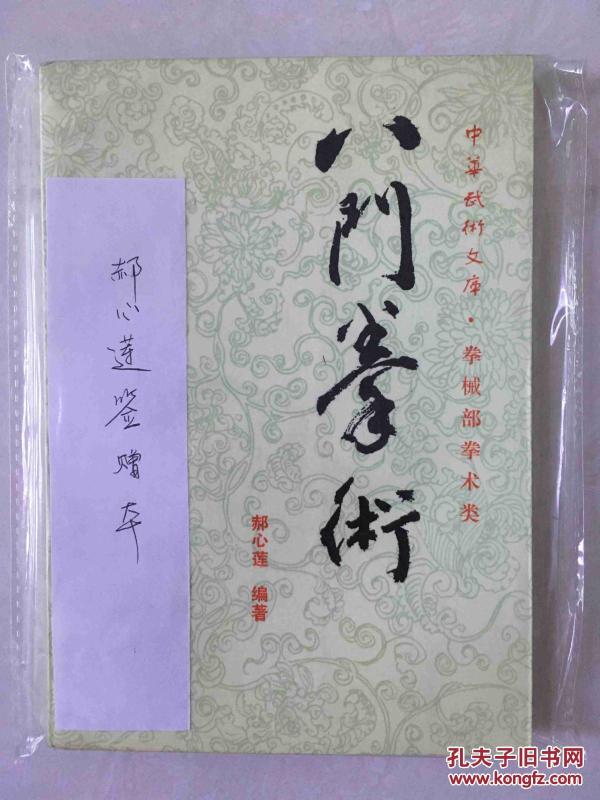 中华武術文库·拳械部拳术类
八門拳術
郝心莲 编著
郝心莲签赠本
孔夫子旧书网
www.kongfz.com